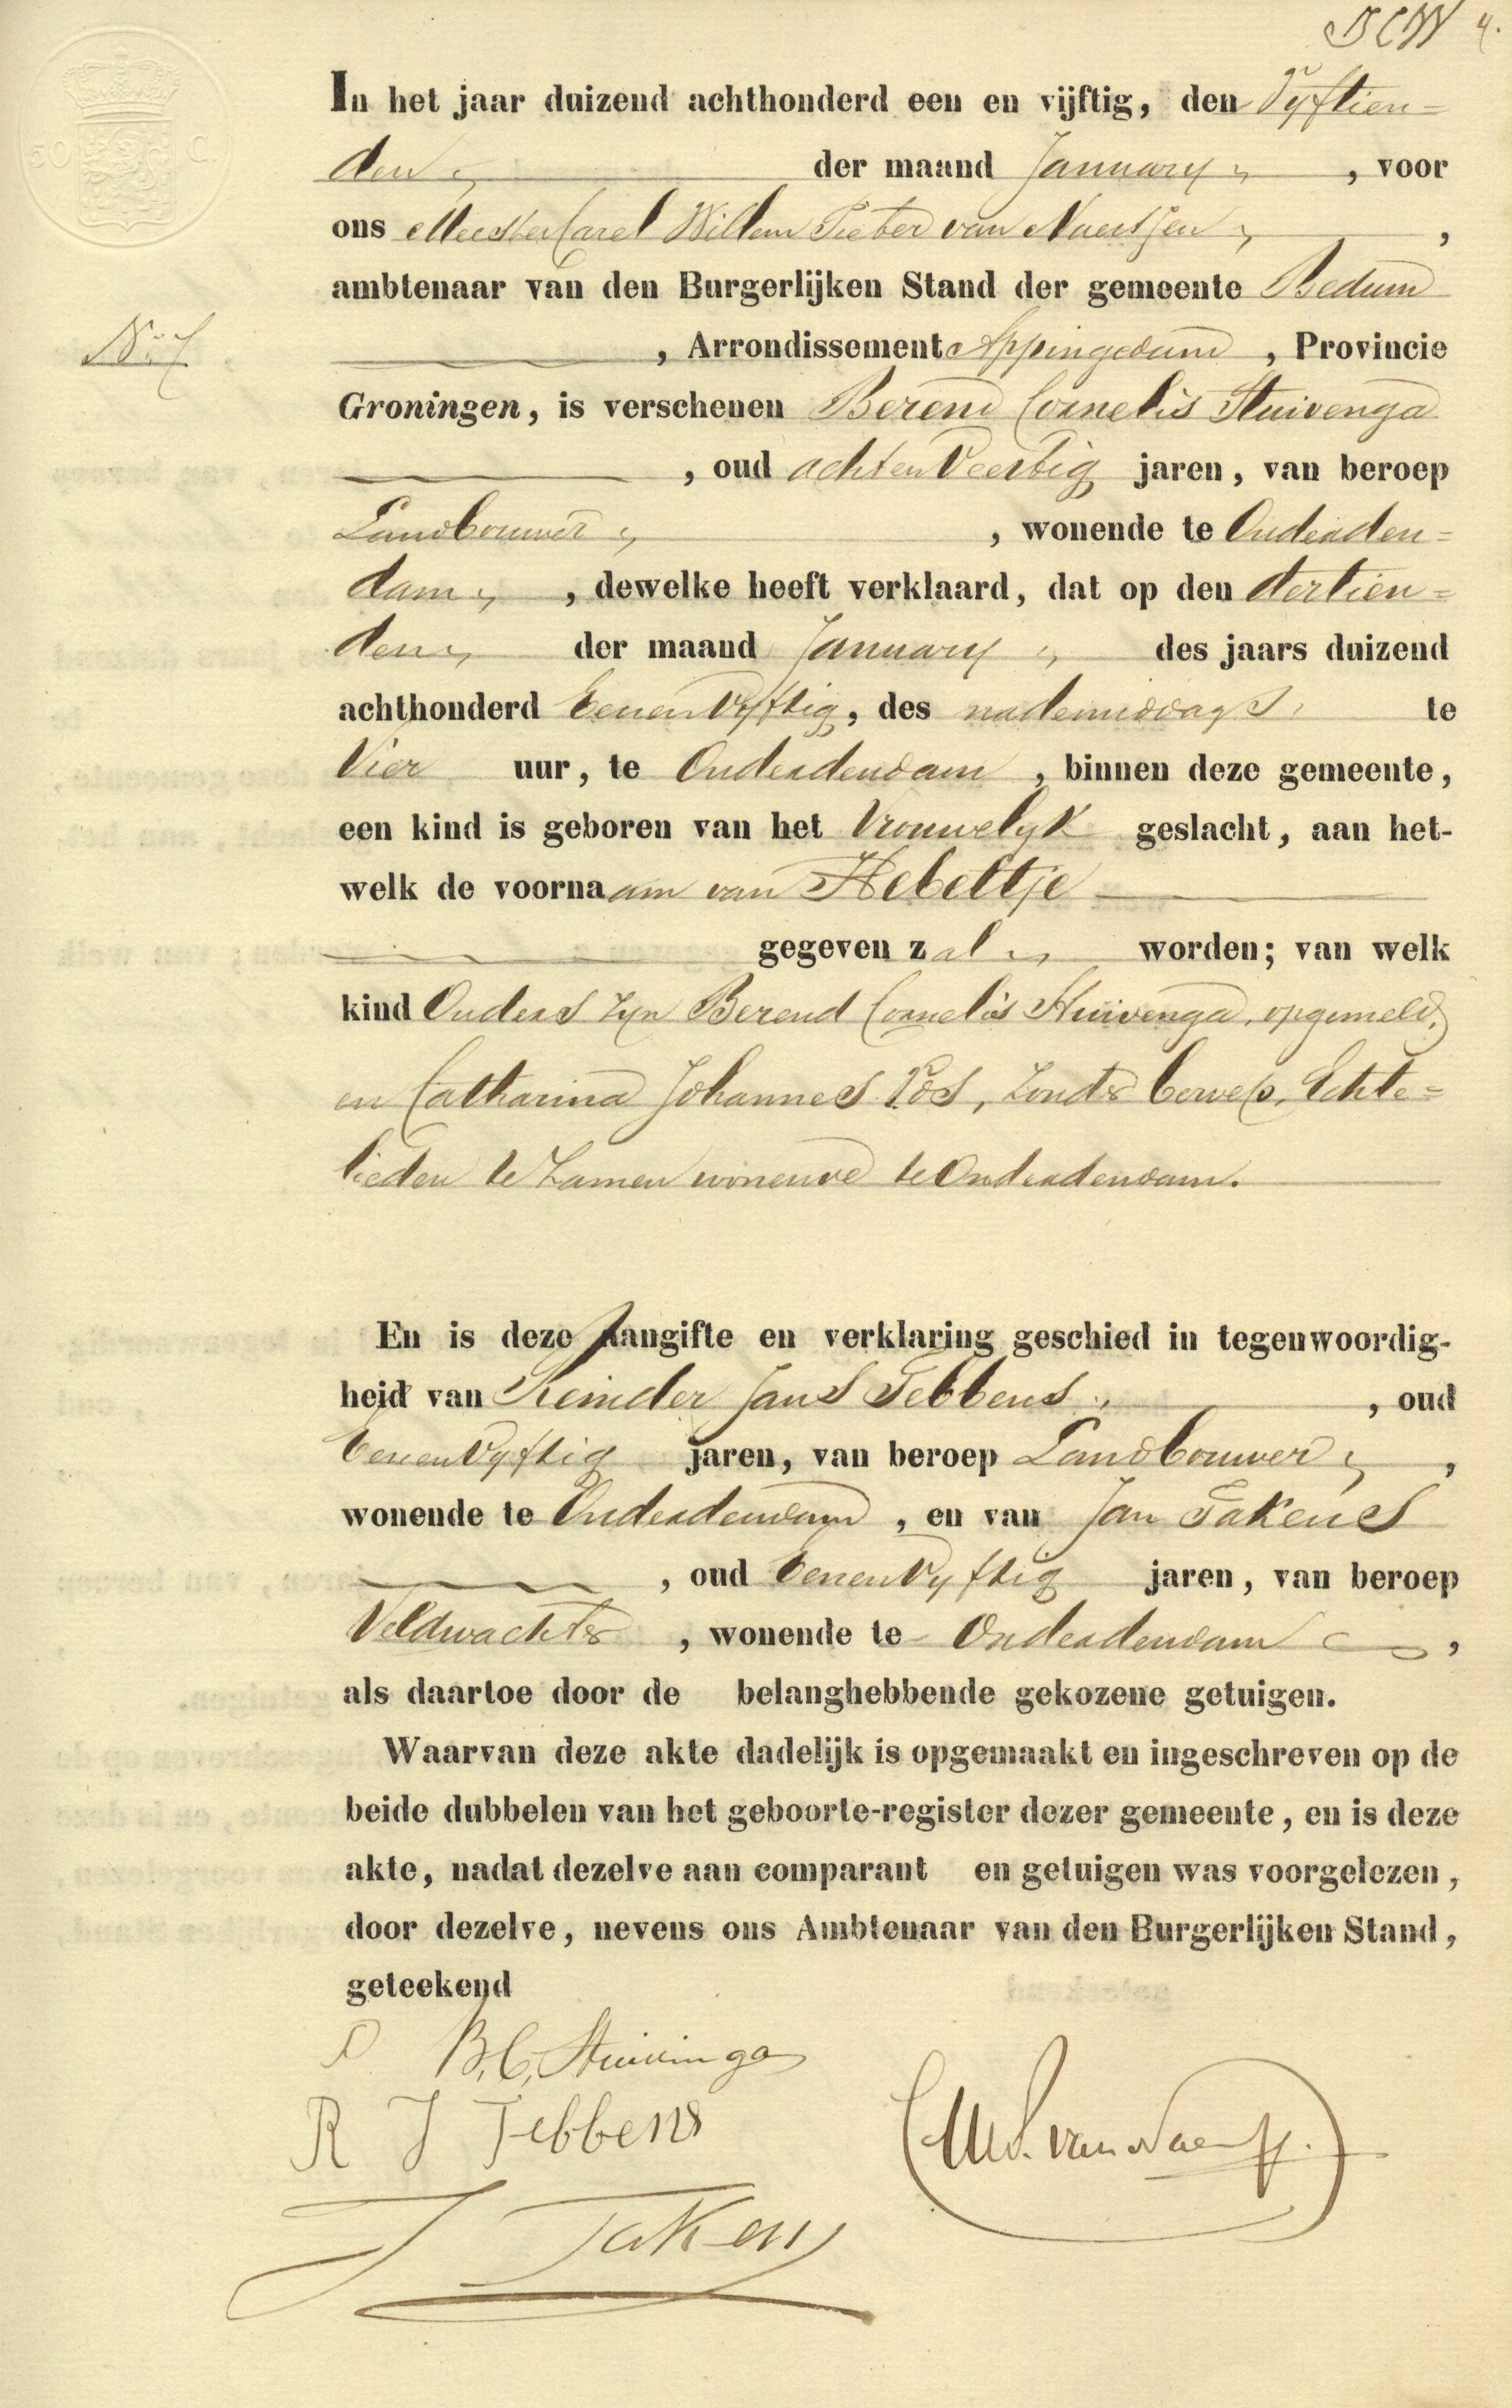 4.
In het jaar duizend achthonderd een en vijftig, den Vyftien=
den der maand January, voor
ons Meester Carel Willem Pieter van Naerssen,
ambtenaar van den Burgerlijken Stand der gemeente Bedum
, Arrondissement Appingedam, Provincie
Groningen, is verschenen Berend Cornelis Stuivenga
, oud achtenVeertig jaren, van beroep
Landbouwer, wonende te Onderden=
dam, dewelke heeft verklaard, dat op den dertien=
den der maand January des jaars duizend
achthonderd EenenVyftig, des nademiddags te
Vier uur, te Onderdendam, binnen deze gemeente,
een kind is geboren van het Vrouwelyk geslacht, aan het-
welk de voornaam van Hebeltje
gegeven zal worden; van welk
kind Ouders zyn Berend Cornelis Stuivenga, opgemeld,
en Catharina Johannes Vos, zonder beroep, Echte=
lieden te zamen wonende te Onderdendam.
En is deze Aangifte en verklaring geschied in tegenwoordig-
heid van Reinder Jans Tebbens, oud
EenenVyftig jaren, van beroep Landbouwer,
wonende te Onderdendam, en van Jan Takens
, oud EenenVyftig jaren, van beroep
Veldwachter, wonende te Onderdendam,
als daartoe door de belanghebbende gekozene getuigen.
Waarvan deze akte dadelijk is opgemaakt en ingeschreven op de
beide dubbelen van het geboorte-register dezer gemeente, en is deze
akte, nadat dezelve aan comparant en getuigen was voorgelezen,
door dezelve, nevens ons Ambtenaar van den Burgerlijken Stand,
geteekend
B. C. Stuivinga
R J Tebbens
J Takens
50 C.